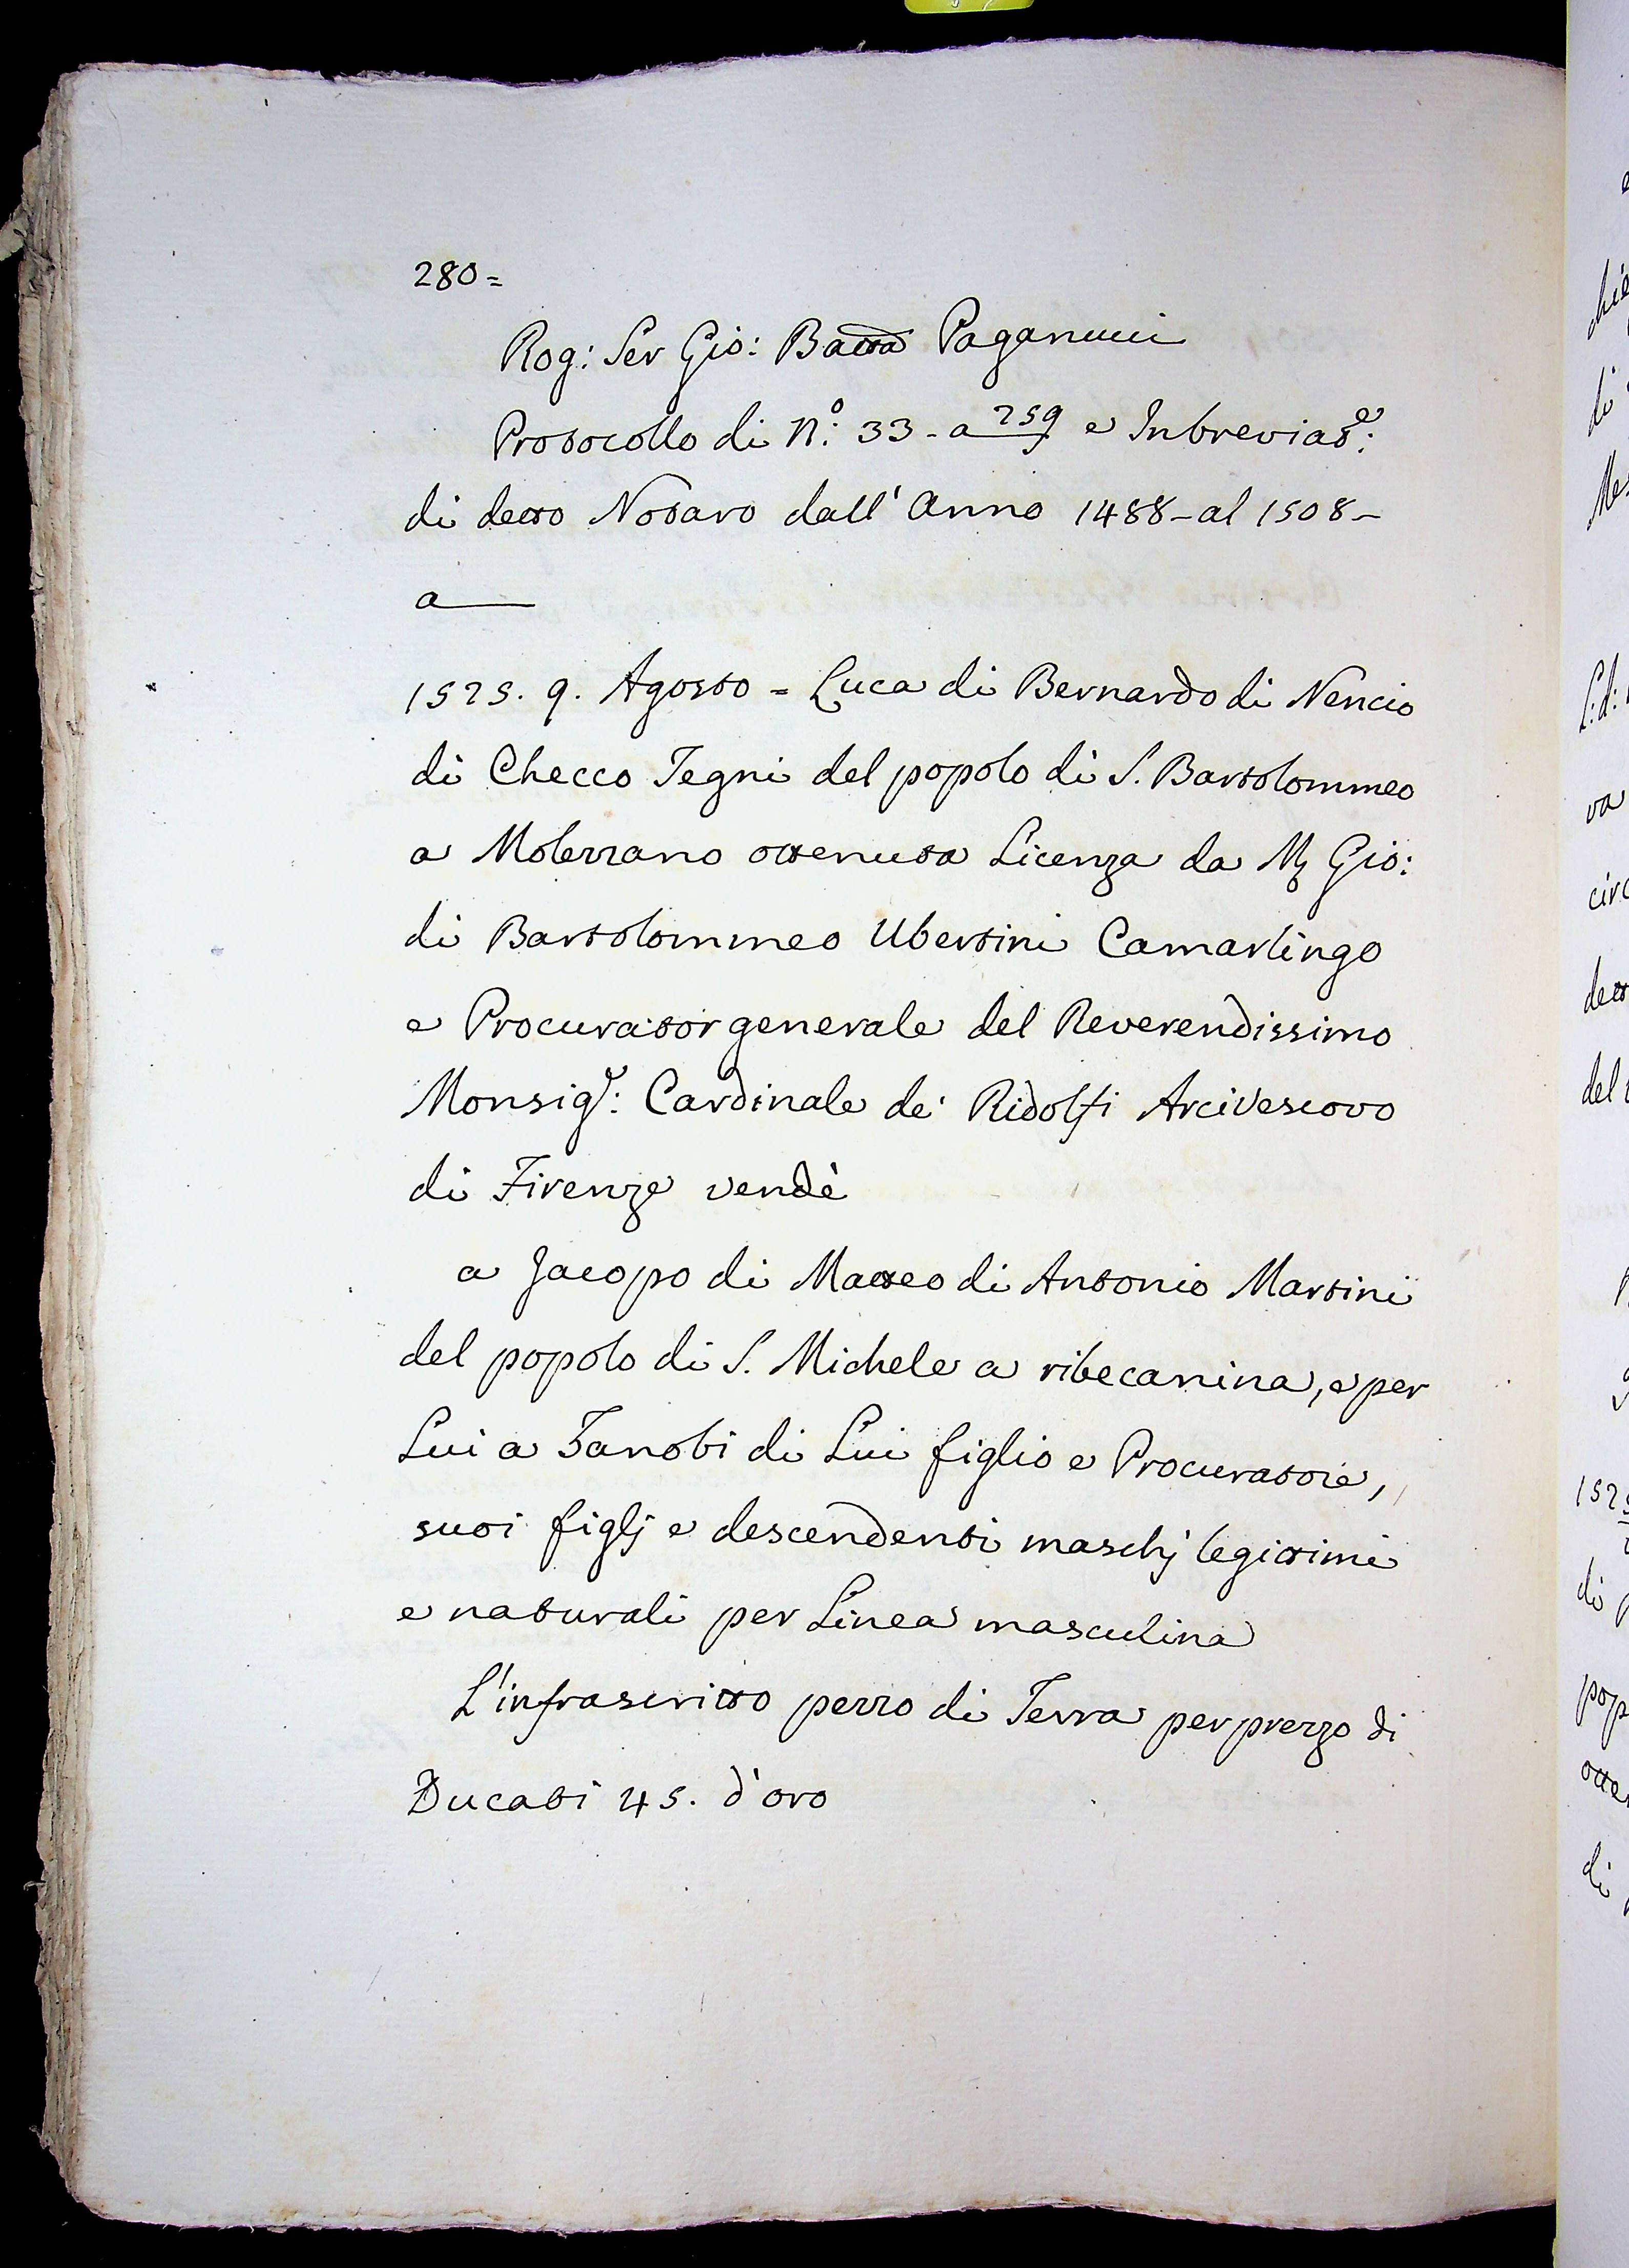 280=
Rog: Ser Gio: Batta Paganucci
Protocollo di N.º 33 - a 259 e Inbreviat.e:
di detto Notaro dall'Anno 1488 - al 1508 -
a
1525. 9. Agosto = Luca di Bernardo di Nencio
di Checco Tegni del popolo di S. Bartolommeo
a Molezzano ottenuta Licenza da M Gio:
di Bartolommeo Ubertini Camarlingo
e Procurator generale del Reverendissimo
Monsig.r: Cardinale de' Ridolfi Arcivescovo
di Firenze vendè
a Jacopo di Matteo di Antonio Martini
del popolo di S. Michele a ribecanina, e per
Lui a Zanobi di Lui figlio e Procuratore,
suoi figlj e descendenti maschj legittimi
e naturali per Linea masculina
L'infrascritto pezzo di Terra per prezzo di
Ducati 45. d'oro